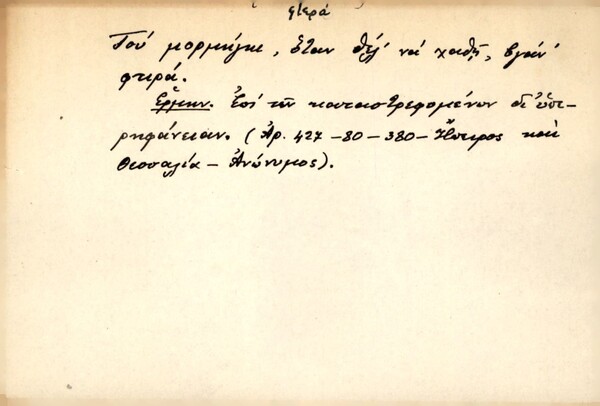 φτερά
Τοὺ μορμήγκι, ὅταν θέλ' νὰ χαθῇ, βγάν'
φτερά.
Ἑρμην. Ἐπὶ τῶν καταστρεφομένων δι' ὑπε-
ρηφάνειαν. (Ἀρ. 427 - 80 - 380 - Ἤπειρος καὶ
Θεσσαλία - Ἀνώνυμος).